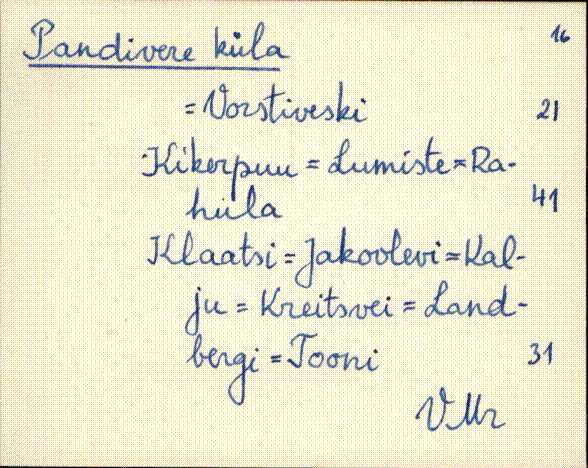 Pandivere küla 16
= Vorstiveski 21
Kikerpuu = Lumiste = Ra-
hüla 41
Klaatsi = Jakoolevi = Kal-
ju = Kreitsvei = Land-
bergi = Tooni 31
VMr